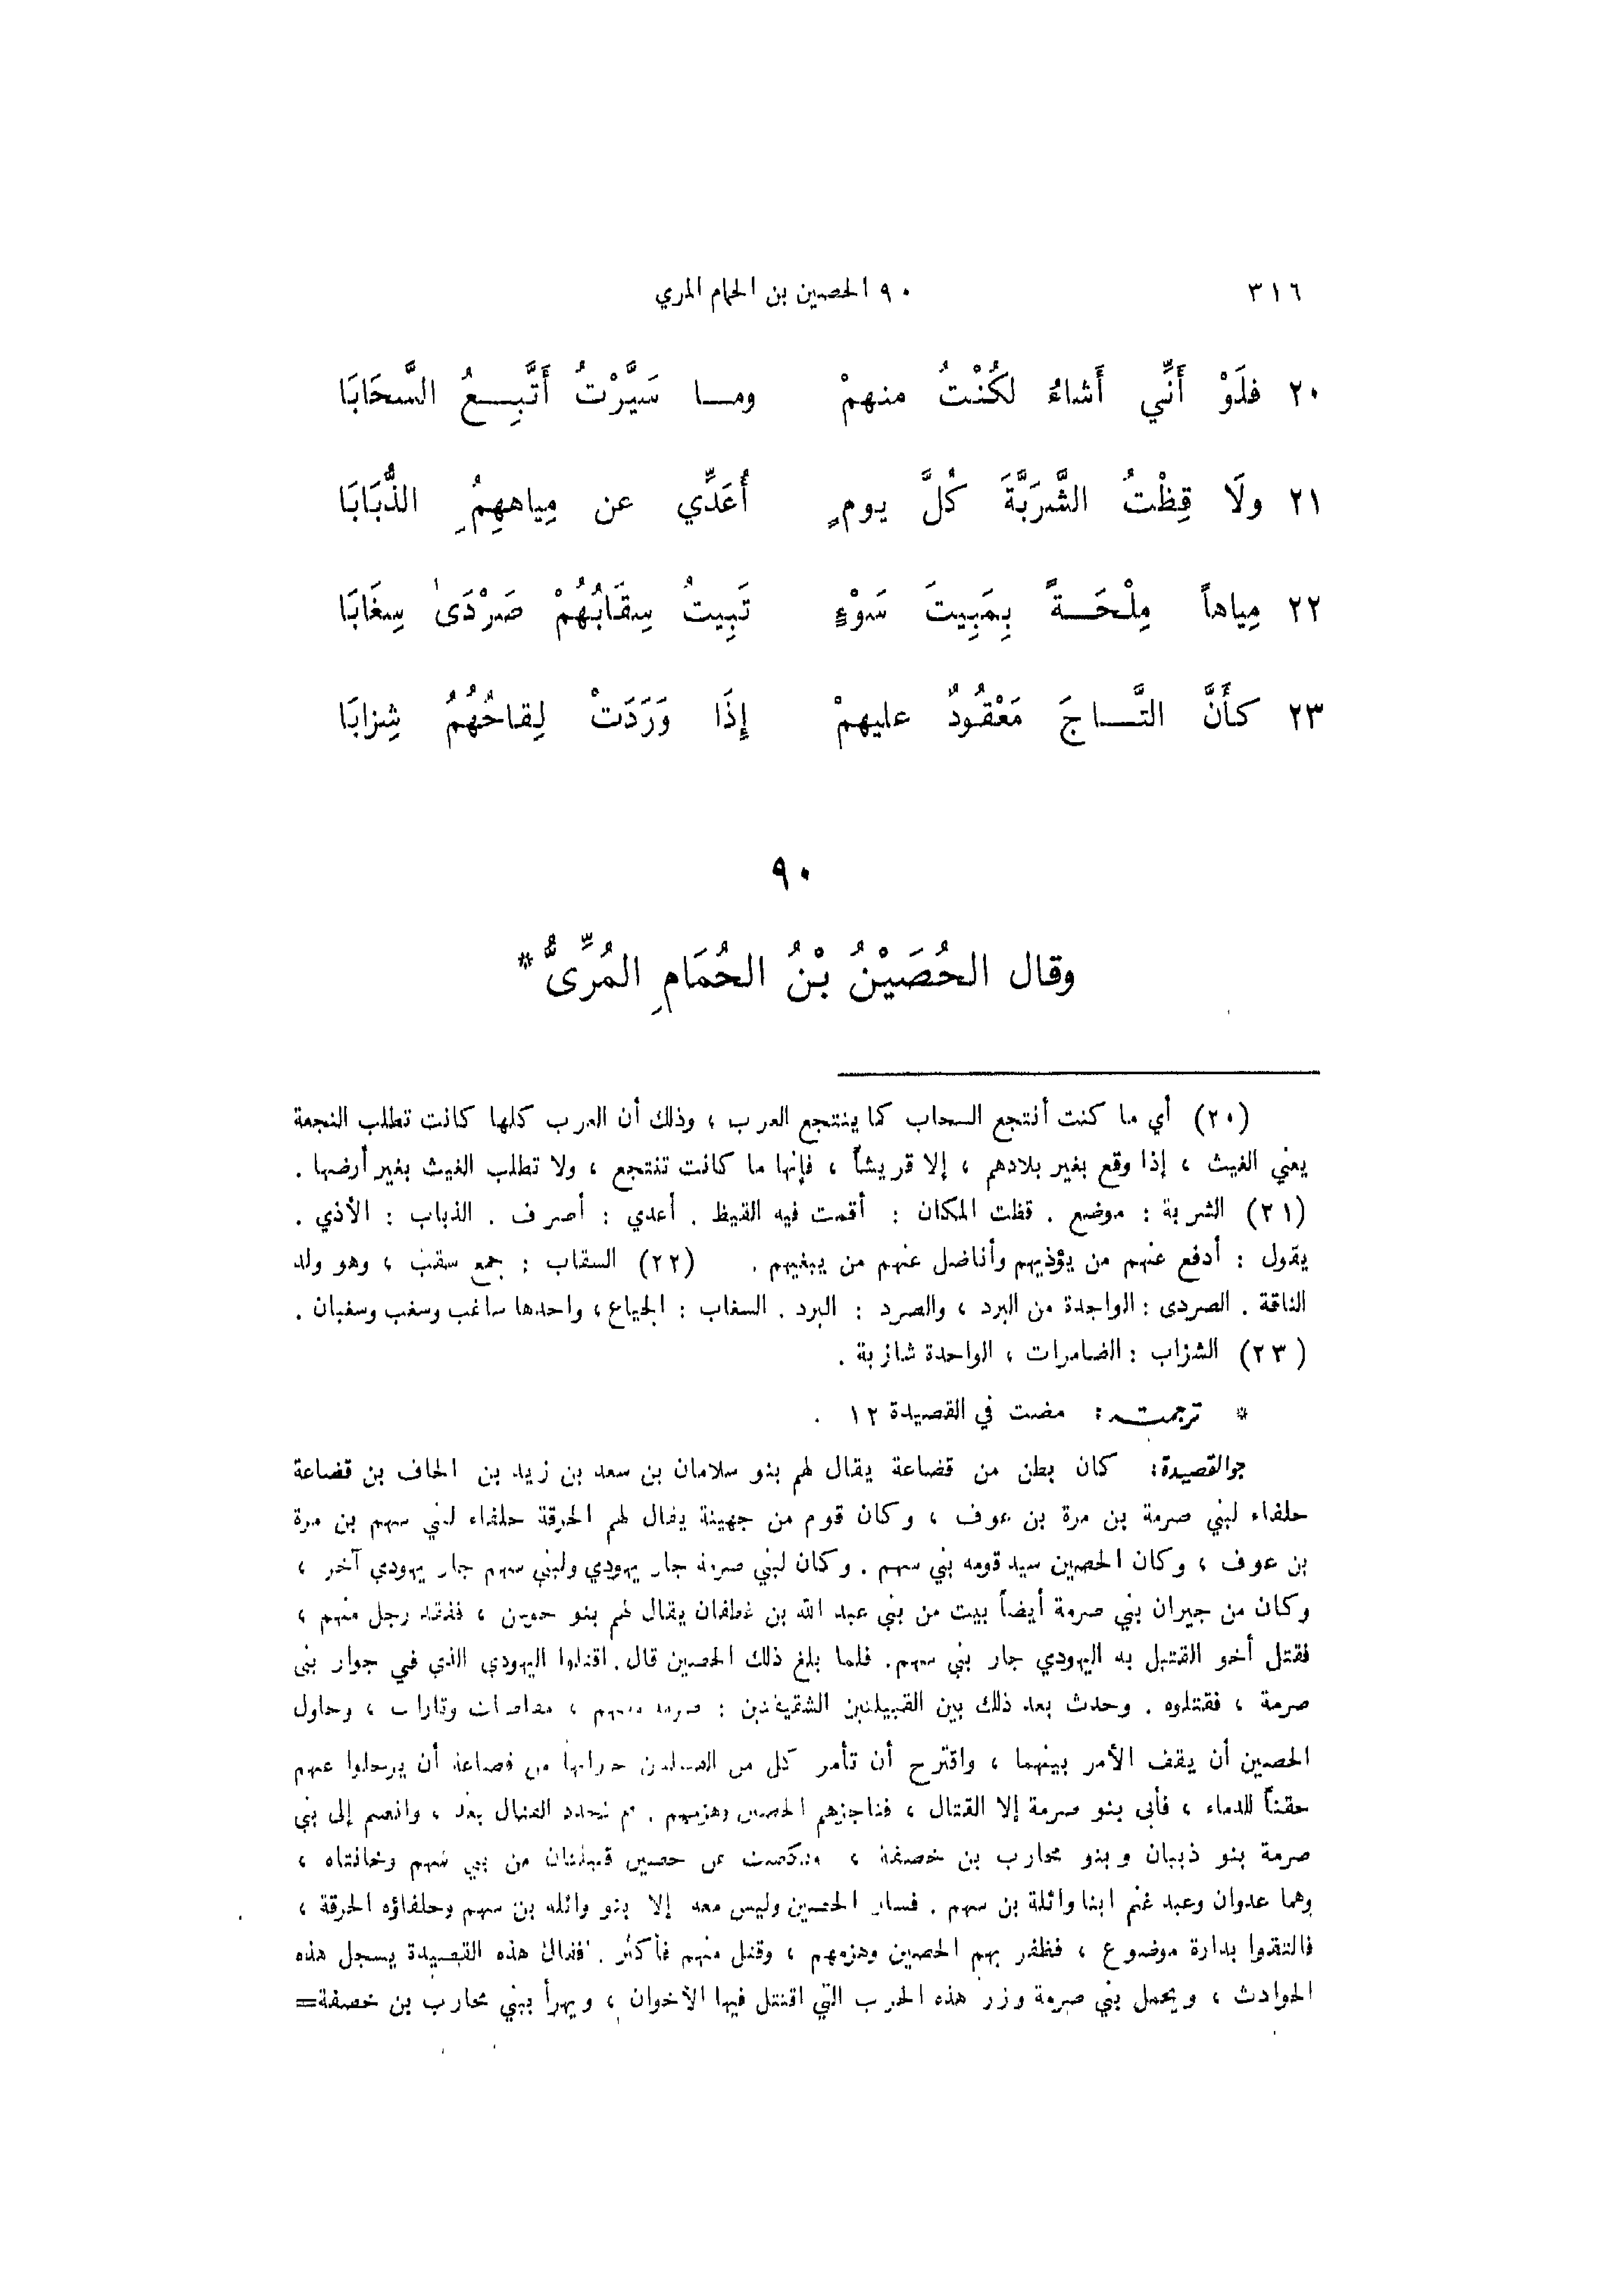 ٣١٦ ٩٠ الحصين بن الحمام المري
٢٠ فلَوْ أَنِّي أَشاءُ لكُنْتُ منهمْ وما سَيَّرْتُ أَتَّبِعُ السَّحَابَا
٢١ ولَا قِظْتُ الشَّرَبَّةَ كُلَّ يومٍ أُعَدِّي عن مِياههِمُ الذُّبَابَا
٢٢ مِياهاً مِلْحَةً بِمَبِيتَ سَوْءٍ تَبِيتُ سِقَابُهُمْ صَرْدَىٰ سِغَابَا
٢٣ كأَنَّ التَّاجَ مَعْقُودٌ عليهمْ إِذَا وَرَدَتْ لِقاحُهُمُ شِزابَا
٩٠
وقال الحُصَيْنُ بْنُ الحُمَامِ المُرِّىُّ *
(٢٠) أي ما كنت أنتجع السحاب كما ينتجع العرب ، وذلك أن العرب كلها كانت تطلب النجعة
يعني الغيث ، إذا وقع بغير بلادهم ، إلا قريشاً ، فإنها ما كانت تنتجع ، ولا تطلب الغيث بغير أرضها .
(٢١) الشربة : موضع . قظت المكان : أقمت فيه القيظ . أعدي : أصرف . الذباب : الأذي .
يقول : أدفع عنهم من يؤذيهم وأناضل عنهم من يبغيهم . (٢٢) السقاب : جمع سقب ، وهو ولد
الناقة . الصردى : الواجدة من البرد ، والصرد : البرد . السغاب : الجياع ، واحدها ساغب وسغب وسغبان .
(٢٣) الشزاب : الضامرات ، الواحدة شازبة .
* ترجمته : مضت في القصيدة ١٢ .
جو القصيدة : كان بطن من قضاعة يقال لهم بنو سلامان بن سعد بن زيد بن الحاف بن قضاعة
حلفاء لبني صرمة بن مرة بن عوف ، وكان قوم من جهينة يقال لهم الحرقة حلفاء لبني سهم بن مرة
بن عوف ، وكان الحصين سيد قومه بني سهم . وكان لبني صرمة جار يهودي ولبني سهم جار يهودي آخر ،
وكان من جيران بني صرمة أيضاً بيت من بني عبد الله بن غطفان يقال لهم بنو جوشن ، ففقد رجل منهم ،
فقتل أخو القتيل به اليهودي جار بني سهم . فلما بلغ ذلك الحصين قال . اقتلوا اليهودي الذي في جوار بنى
صرمة ، فقتلوه . وحدث بعد ذلك بين القبيلتين الشقيقتين : صرمة وسهم ، مقاصات وتارات ، وحاول
الحصين أن يقف الأمر بينهما ، واقترح أن تأمر كل من القبيلتين جيرانها من قضاعة أن يرحلوا عنهم
حقناً للدماء ، فأبى بنو صرمة إلا القتال ، فناجزهم الحصين وهزمهم . ثم تجدد القتال بعد ، وانضم إلى بني
صرمة بنو ذبيان وبنو محارب بن خصفة ، ونكصت عن حصين قبيلتان من بني سهم وخانتاه ،
وهما عدوان وعبد غنم ابنا وائلة بن سهم . فسار الحصين وليس معه إلا بنو وائلة بن سهم وحلفاؤه الحرقة ،
فالتقوا بدارة موضوع ، فظفر بهم الحصين وهزمهم ، وقتل منهم فأكثر . فقال هذه القصيدة يسجل هذه
الحوادث ، ويحمل بني صرمة وزر هذه الحرب التي اقتتل فيها الأخوان ، ويهزأ ببني محارب بن خصفة=